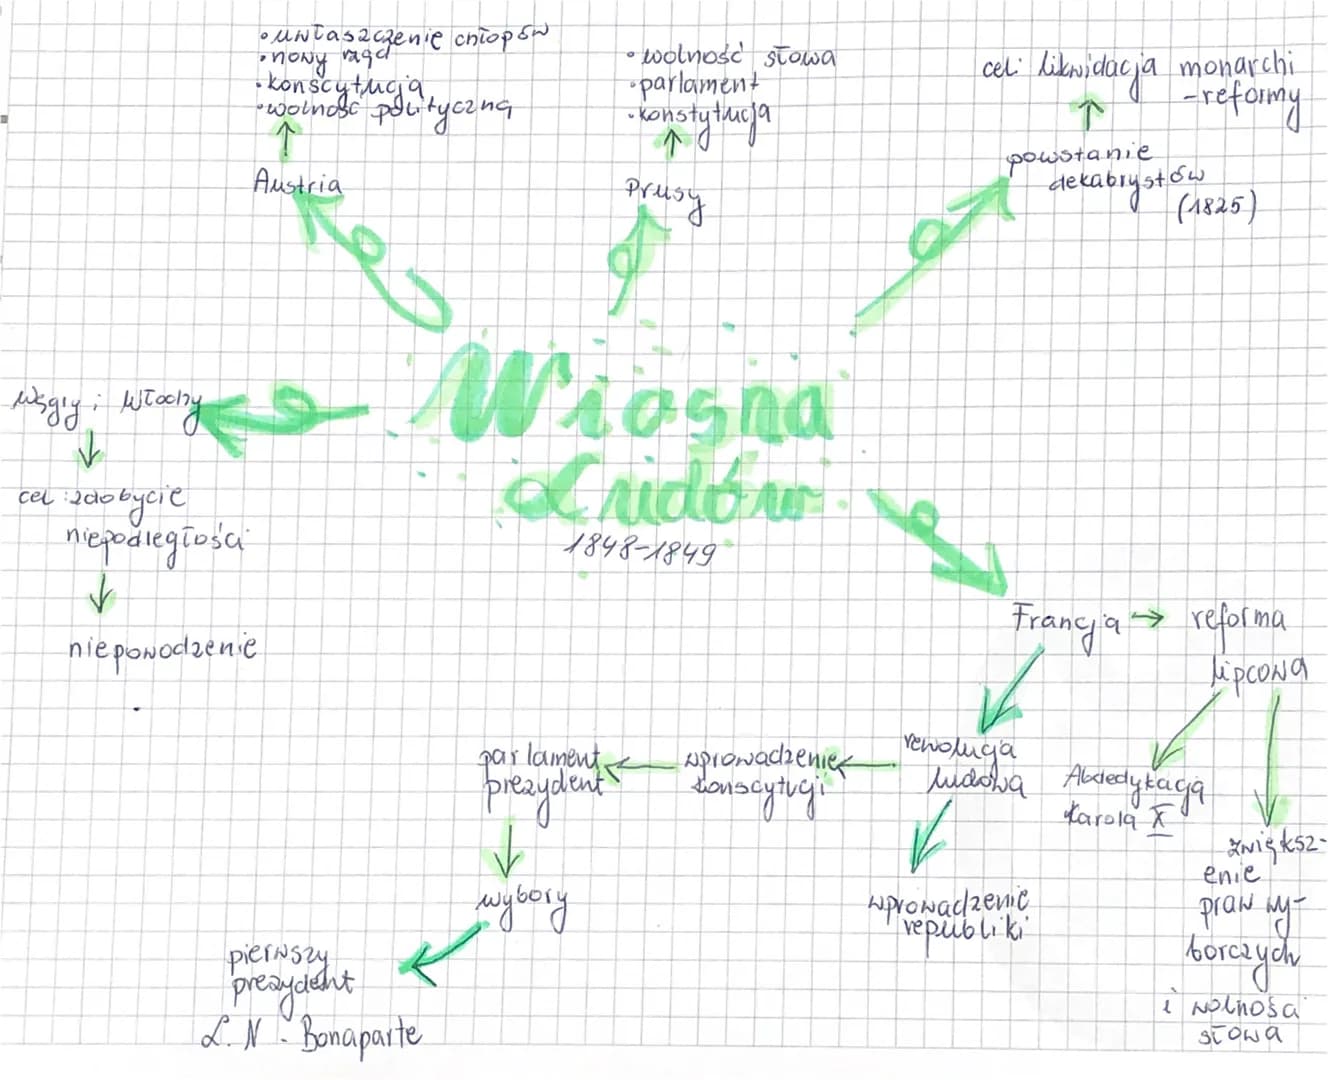 • uwłaszczenie chłopów
• nowy rząd
• konscytucja
• wolność polityczna
Austria
• wolność słowa
• parlament
• konstytucja
Prusy
cel: likwidacja monarchi
- reformy
powstanie
dekabrystów
(1825)
Wiosna
Ludów
1848-1849
Węgry i Włochy
cel: zdobycie
niepodległości
niepowodzenie
Francja → reforma
lipcowa
Abdedykacja
Karola X
zwiększ-
enie
praw wy-
borczych
i wolności
słowa
rewolucja
ludowa
wprowadzenie
republiki
wprowadzenie
konscytucji
parlament
prezydent
wybory
pierwszy
prezydent
L. N. Bonaparte